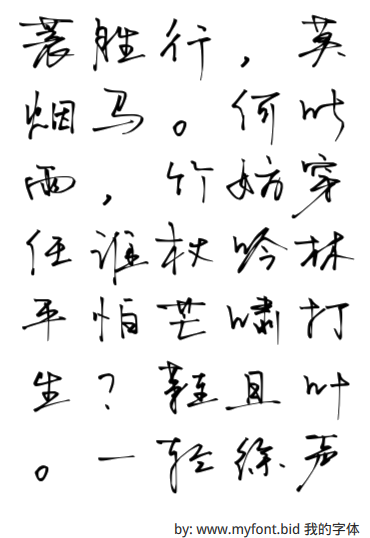 莫听穿林打叶声
，何妨吟啸且徐
行。竹杖芒鞋轻
胜马，谁怕？一
蓑烟雨任平生。
by: www.myfont.bid 我的字体